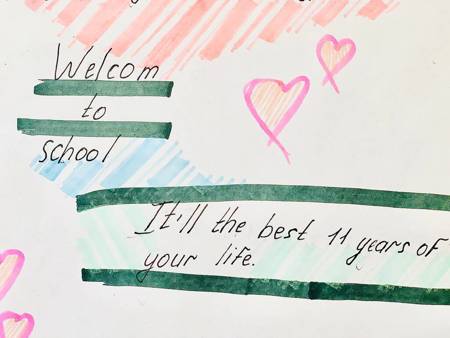 Welcom
to
school
It'll the best 11 years of
your life.